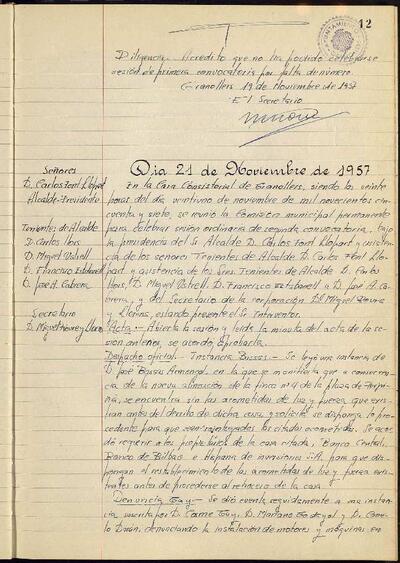 12
Diligencia: Acredito que no ha podido celebrarse
sesión de primera convocatoria por falta de número.
Granollers 19 de Noviembre de 1957
El Secretario
Dia 21 de Noviembre de 1957
Señores
D. Carlos Font Llopart
Alcalde-Presidente
Tenientes de Alcalde
D. Carlos Llois
D. Miguel Votrell
D. Francisco Estabanell
D. José A. Cabrera
Secretario
D. Miguel
En la Casa Consistorial de Granollers, siendo las veinte
horas del día veintiuno de noviembre de mil novecientos cin
cuenta y siete, se reunió la Comisión municipal permanente
para celebrar sesión ordinaria de segunda convocatoria, bajo
la presidencia del S. Alcalde D. Carlos Font Llopart y asisten
cia de los señores Tenientes de Alcalde D. Carlos Font Llo
part y asistencia de los Sres. Tenientes de Alcalde D. Carlos
Llois, D. Miguel Votrell, D. Francisco Estabanell y D. José A. Ca
brera, y del Secretario de la corporación D. Miguel
y estando presente el Sr. Interventor.
Acta.- Abierta la sesión y leída la minuta del acta de la se
sión anterior, se acordó aprobarla.
Despacho oficial.- Instancia Bassas.- Se leyó una instancia de
D. José Bassas Armengol en la que se manifiesta que a consecuen
cia de la nueva alineación de la finca nº 4 de la plaza de
se encuentra sin las acometidas de luz y fuerza que exis
tían antes del derribo de dicha casa y solicita se disponga lo pro
cedente para que sean reintegradas las citadas acometidas. Se acor
dó requerir a los propietarios de la casa citada, Banco Central,
Banco de Bilbao e Hispana de inversiones S.A. para que dis
pongan el restablecimiento de las acometidas de luz y fuerza exis
tentes antes de procederse al retroceso de la casa.
Denuncia Gay.- Se dió cuenta seguidamente a una instancia
suscrita por D. Cosme Gay, D. Mariano y D. Cami
lo Durán, denunciando la instalación de motores y máquinas en